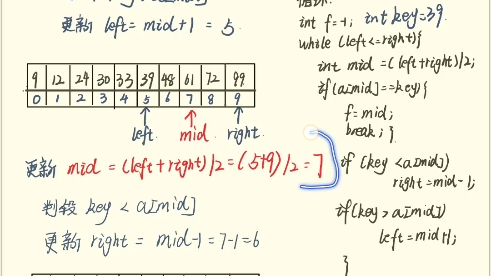 更新 left = mid+1 = 5.
9 12 24 30 33 39 48 61 72 99
0 1 2 3 4 5 6 7 8 9
left. mid right.
更新 mid = (left+right)/2 = (5+9)/2 = 7
判段 key < a[mid]
更新 right = mid-1 = 7-1 = 6
int f=-1; int key=39.
while (left<=right){
int mid =(left+right)/2;
if(a[mid]==key){
f=mid;
break; }
if (key <a[mid])
right=mid-1;
if(key>a[mid])
left=mid+1;
}